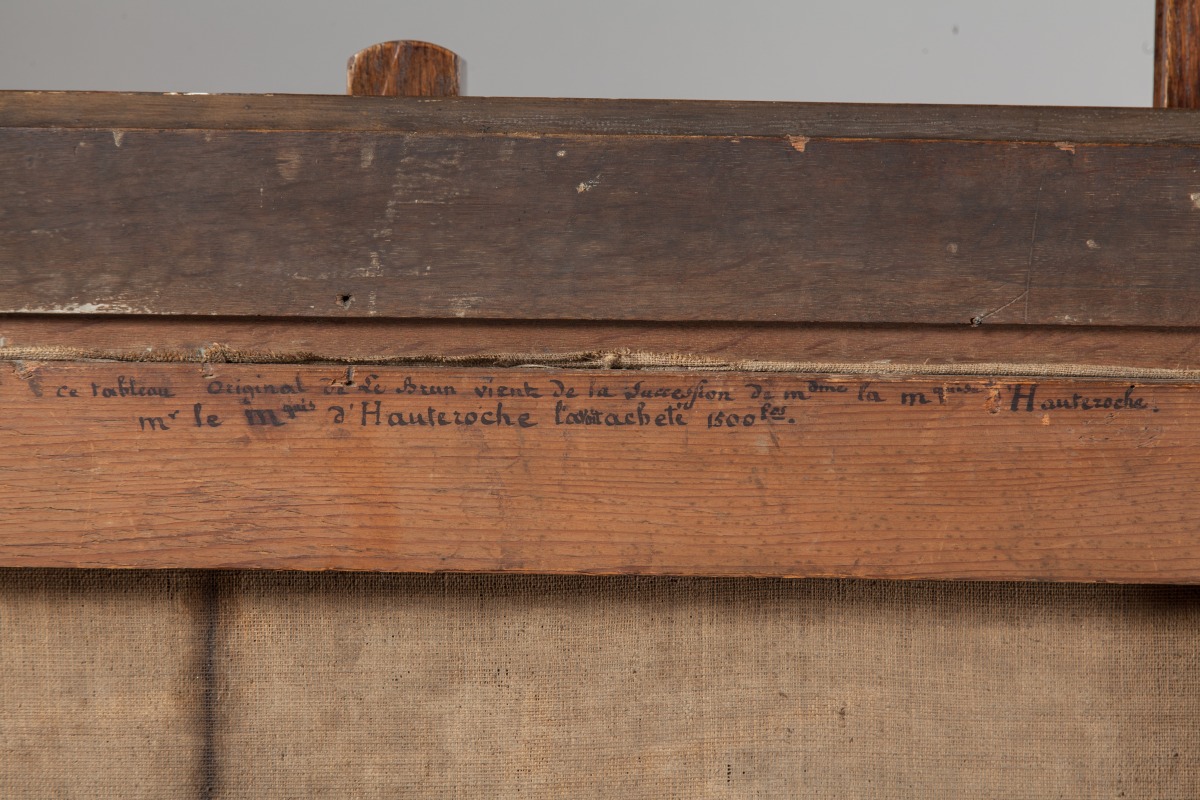 ce tableau Original de Le Brun vient de la Succession de mdme la mquise d'Hauteroche.
mr le mquis d'Hauteroche l'avait acheté 1500 frs.